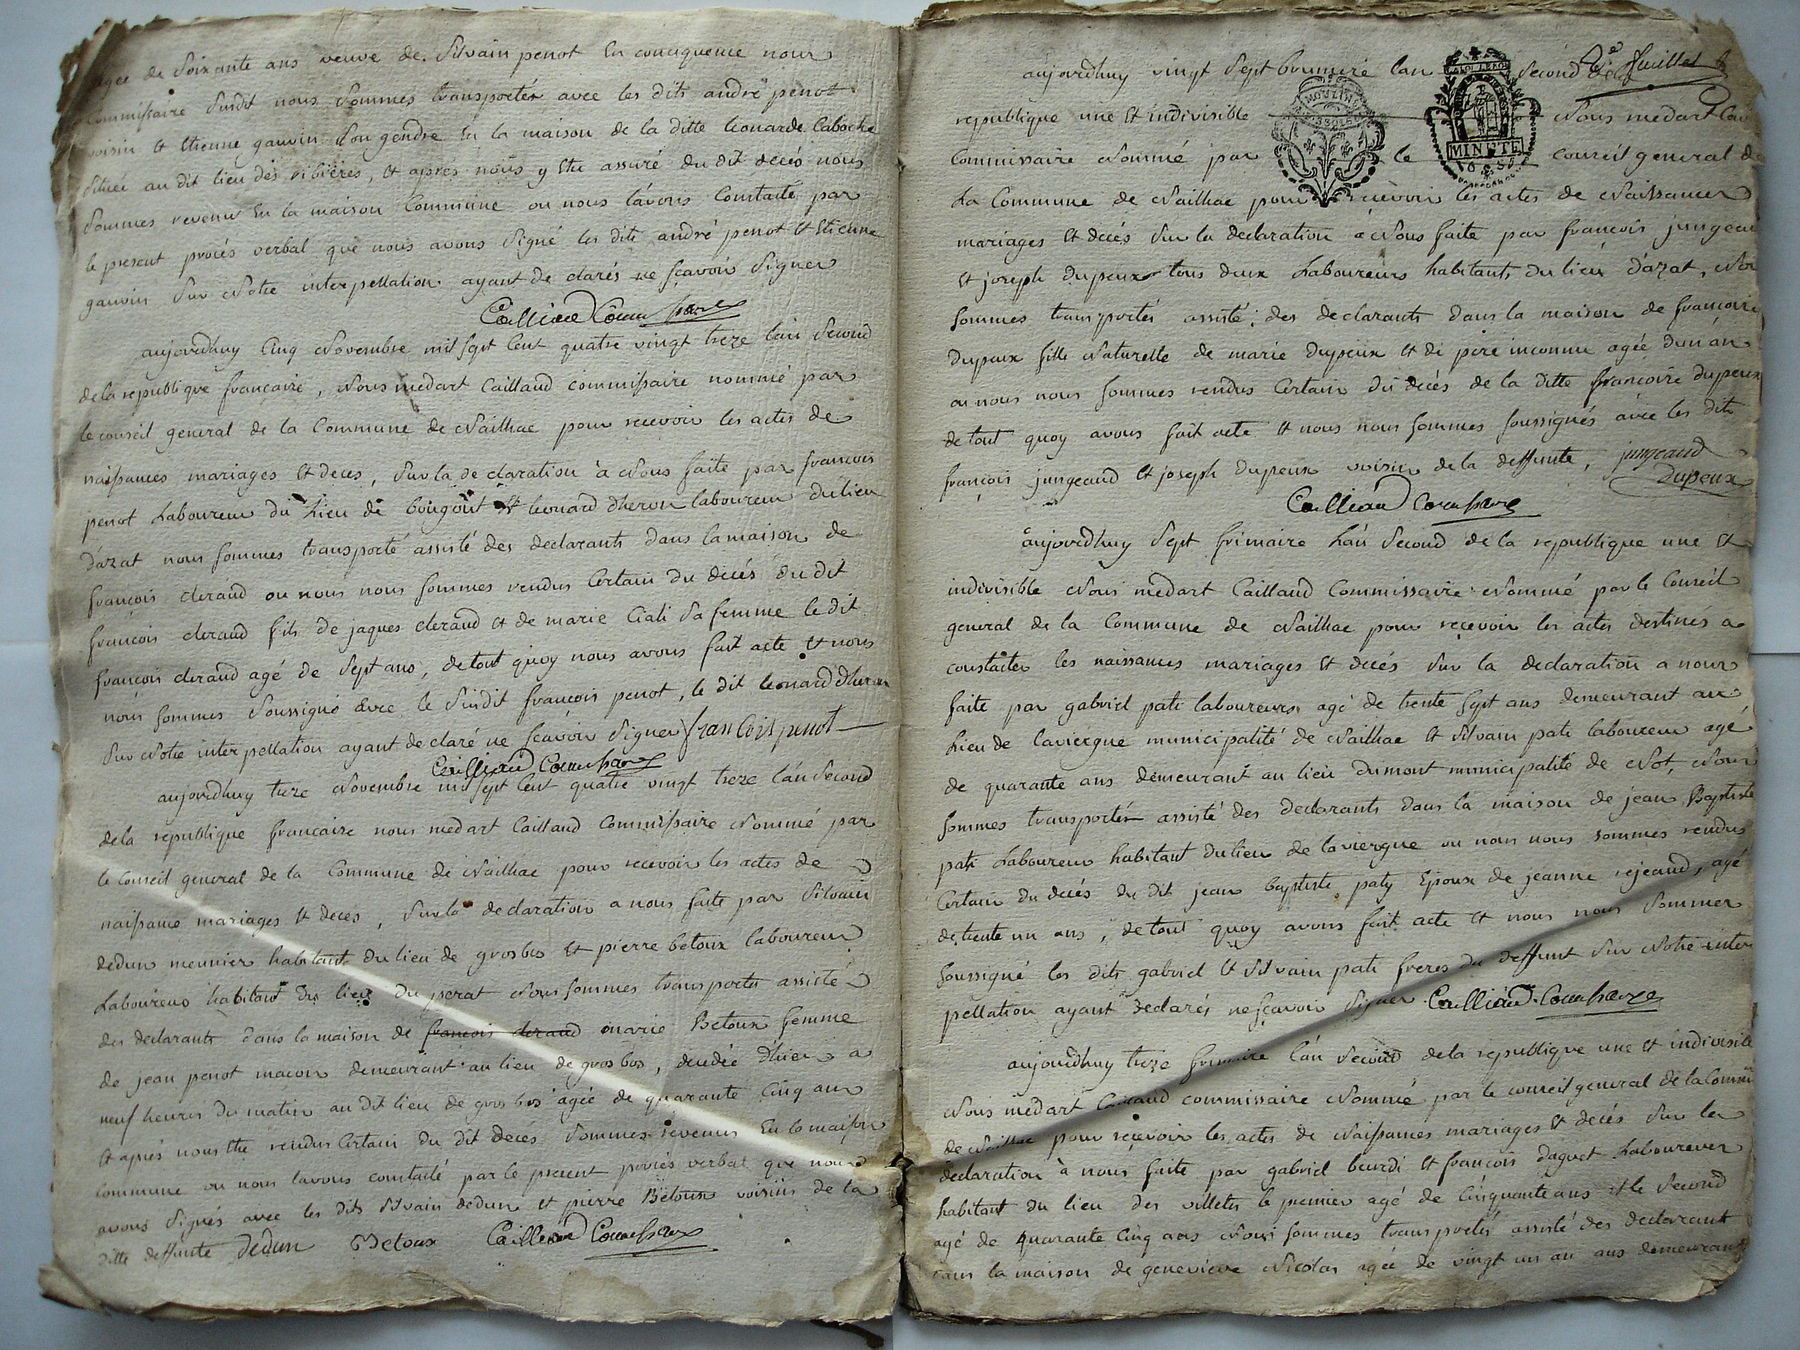 agée de soixante ans veuve de Silvain penot En consequence nous
commissaire susdit nous sommes transportés avec les dits andré penot
voisin et Etienne gauvin son gendre En la maison de la ditte leonarde laboche
située au dit lieu des ribières, et apres nous y Etre assuré du dit decés nous
sommes revenu En la maison Commune ou nous l'avons Constaté par
le present procés verbal que nous avons Signé les dits andré penot et Etienne
gauvin Sur Notre interpellation ayant de clarés ne sçavoir Signer
Cailliaud Commissaire
aujourdhuy Cinq Novembre mil Sept Cent quatre vingt treze l'an Second
de la republique francaise, Nous medart Caillaud commissaire nommé par
le conseil general de la Commune de Naillhac pour recevoir les actes de
naissances mariages Et deces, Sur la de claration a Nous faite par francois
penot Laboureur du Lieu de bougout Et leonard dheron laboureur du lieu
d'azat nous sommes transporté assisté des declarants dans la maison de
françois deraud ou nous nous sommes rendus Certain du decés du dit
françois deraud fils de jaques deraud et de marie Ciali Sa femme le dit
françois deraud agé de Sept ans, de tout quoy nous avons fait acte Et nous
nous sommes Soussigné avec le Susdit françois penot, le dit leonard dheron
Sur Notre interpellation ayant de claré ne sçavoir Signer francois penot
Cailliaud Commissaire
aujourdhuy treze Novembre mil Sept Cent quatre vingt treze l'an Second
de la republique francaise nous medart Caillaud Commissaire Nommé par
le Conseil general de la Commune de Naillhac pour recevoir les actes de
naissance mariages Et decés, Sur la declaration a nous faite par Silvain
dedun meunier habitant du lieu de grosbos Et pierre betoux laboureur
Laboureur habitant du lieu du perat Nous sommes transportés assisté
des declarants dans la maison de francois deraud marie Betoux femme
de jean penot macon demeurant au lieu de grosbos, decedée d'hier a
neuf heures du matin au dit lieu de gros bos agée de quarante Cinq ans
Et aprés nous Etre rendus Certain du dit decés Sommes revenus En la maison
Commune ou nous l'avons constaté par le present procés verbal que nous
avons Signés avec les dits Silvain dedun et pierre Betoux voisins de la
ditte deffunte Dedun Betoux Cailliaud Commissaire
2e feuillet
aujourdhuy vingt Sept brumaire l'an second de la
republique une Et indivisible Nous medart
MOULINS
MINUTE
Commissaire Nommé par le conseil general de
La Commune de Naillhac pour recevoir les actes de Naissances
mariages Et decés Sur la declaration a Nous faite par françois jungeaud
Et joseph dupeux tous deux Laboureurs habitants du lieu d'azat,
sommes transportés assisté des declarants dans la maison de francoise
dupeux fille Naturelle de marie dupeux Et de pere inconnu agée dun an
ou nous nous sommes rendus Certain du decés de la ditte francoise dupeux
de tout quoy avons fait acte Et nous nous sommes soussignés avec les dits
françois jungeaud Et joseph dupeux voisin de la deffunte, jungeaud
Dupeux
Cailliaud Commissaire
aujourdhuy Sept frimaire L'an Second de la republique une Et
indivisible Nous medart Caillaud Commissaire Nommé par le Conseil
general de la Commune de Naillhac pour recevoir les actes destinés a
constater les naissances mariages Et decés Sur la declaration a nous
faite par gabriel pati laboureur agé de trente Sept ans demeurant au
Lieu de laviergne municipalité de Naillhac Et Silvain pati laboureur agé
de quarante ans demeurant au lieu Dumont municipalité de Not, Nous
sommes transportés assisté des declarants dans la maison de jean Baptiste
pati Laboureur habitant du lieu de lavieregne ou nous nous sommes rendus
Certain du decés du dit jean baptiste paty Epoux de jeanne rejeaud, agé
de trente un ans, de tout quoy avons fait acte Et nous nous sommes
soussigné les dits gabriel Et Silvain pati freres du deffunt Sur Notre inter
pellation ayant declarés ne sçavoir Signer Cailliaud Commissaire
aujourdhuy treze frimaire l'an Second de la republique une Et indivisible
Nous medart Caillaud commissaire Nommé par le conseil general de la Commune
de Naillhac pour recevoir les actes de Naissances mariages Et decés Sur la
declaration a nous faite par gabriel beurdi Et françois daguet Laboureur
habitant du lieu des villetes le premier agé de Cinquante ans Et le Second
agé de quarante Cinq ans Nous sommes transportés assisté des declarant
dans la maison de genevieve Nicolas agée de vingt un an ans demeurant